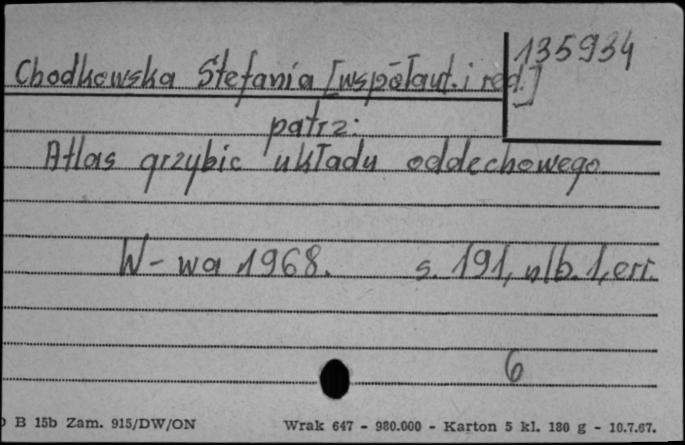 135934
Chodkowska Stefania [współaut. i red.]
patrz:
Atlas grzybic układu oddechowego
W-wa 1968. s. 191, nlb. 1, err.
6
B 15b Zam. 915/DW/ON Wrak 647 - 980.000 - Karton 5 kl. 180 g - 10.7.67.